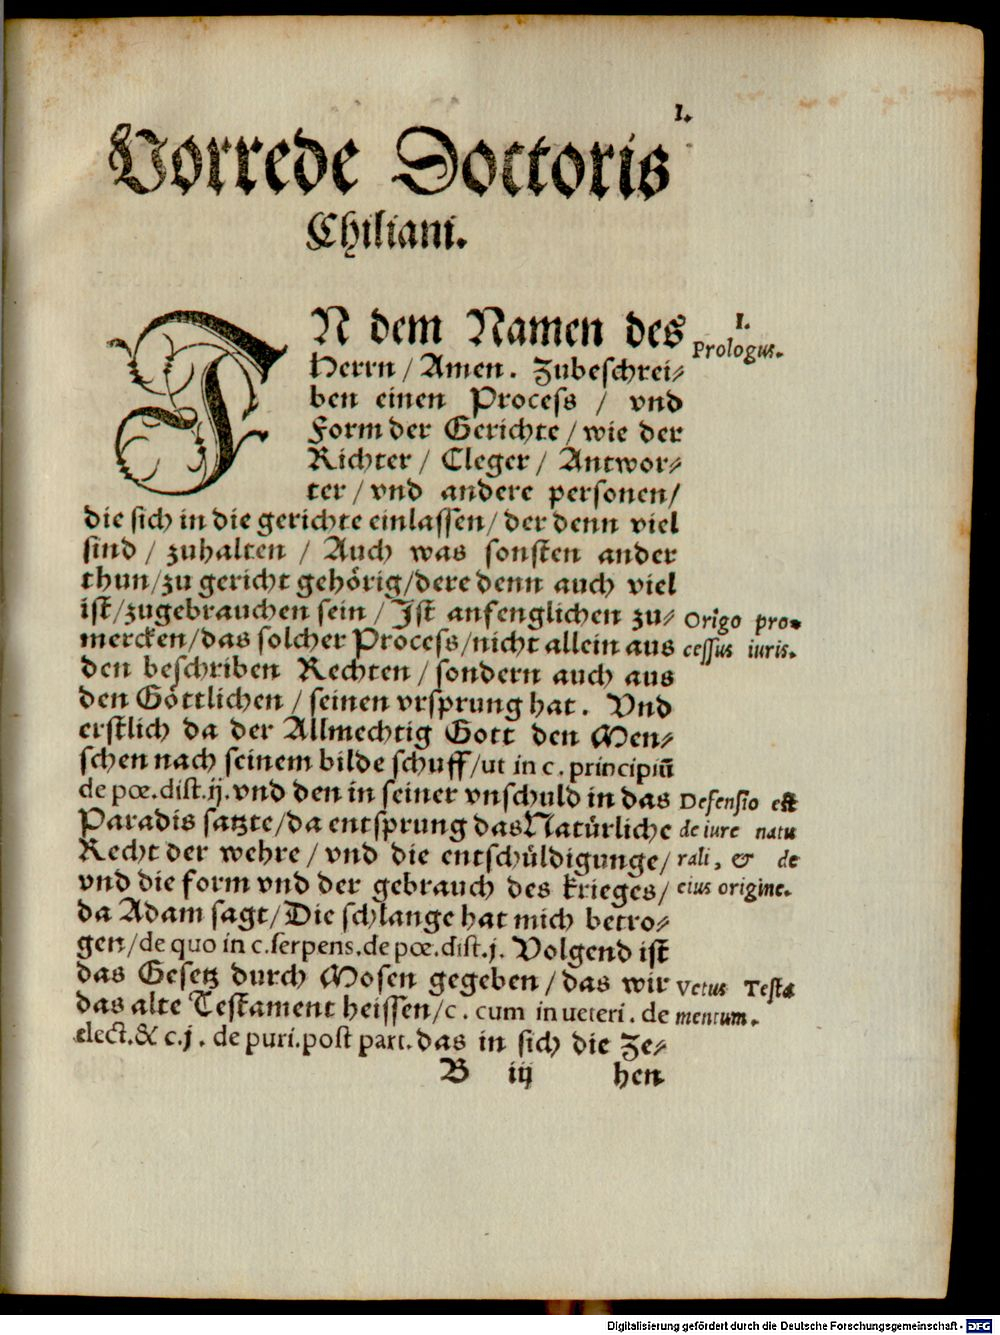 1.
Vorrede Doctoris
Chiliani.
IN dem Namen des
Herrn / Amen. Zubeschrei⸗
ben einen Process / vnd
Form der Gerichte / wie der
Richter / Cleger / Antwor⸗
ter / vnd andere personen /
die sich in die gerichte einlassen / der denn viel
sind / zuhalten / Auch was sonsten ander
thun / zu gericht gehörig / dere denn auch viel
ist / zugebrauchen sein / Ist anfenglichen zu⸗
mercken / das solcher Process / nicht allein aus
den beschriben Rechten / sondern auch aus
den Göttlichen / seinen vrsprung hat. Vnd
erstlich da der Allmechtig Gott den Men⸗
schen nach seinem bilde schuff / ut in c. principiū
de pœ. dist. ij. vnd den in seiner vnschuld in das
Paradis satzte / da entsprung das Natürliche
Recht der wehre / vnd die entschüldigunge /
vnd die form vnd der gebrauch des krieges /
da Adam sagt / Die schlange hat mich betro⸗
gen / de quo in c. serpens. de pœ. dist. j. Volgend ist
das Gesetz durch Mosen gegeben / das wir
das alte Testament heissen / c. cum in ueteri. de
elect. & c. j. de puri. post part. das in sich die Ze⸗
B iij hen
1.
Prologus.
Origo pro⸗
cessus iuris.
Defensio est
de iure natu
rali, & de
eius origine.
Vetus Testa
mentum.
Digitalisierung gefördert durch die Deutsche Forschungsgemeinschaft - DFG